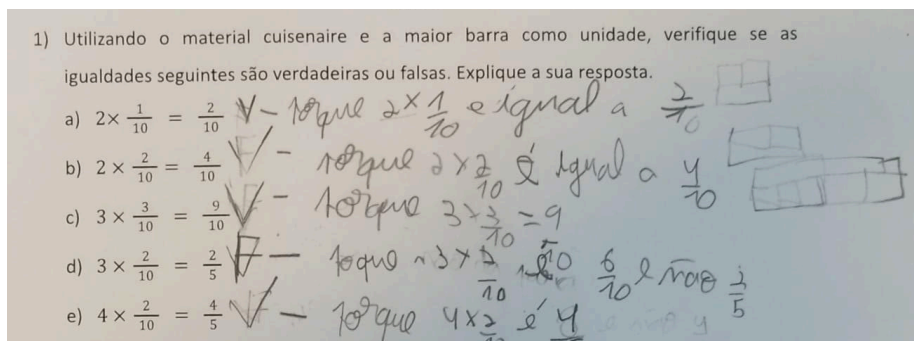 1) Utilizando o material cuisenaire e a maior barra como unidade, verifique se as
igualdades seguintes são verdadeiras ou falsas. Explique a sua resposta.
a) 2× 1/10 = 2/10 V - Porque 2 × 1/10 e igual a 2/10
b) 2 × 2/10 = 4/10 V - Porque 2 × 2/10 é igual a 4/10
c) 3 × 3/10 = 9/10 V - Porque 3 × 3/10 = 9/10
d) 3 × 2/10 = 2/5 F - 3 × 2/10 é 6/10 e não 2/5
e) 4 × 2/10 = 4/5 V - Porque 4 × 2/10 é 4